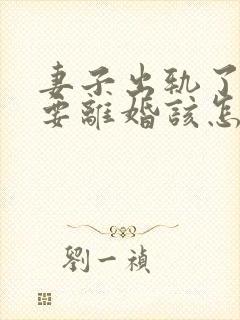 妻子出轨了
要離婚該怎
劉一禎